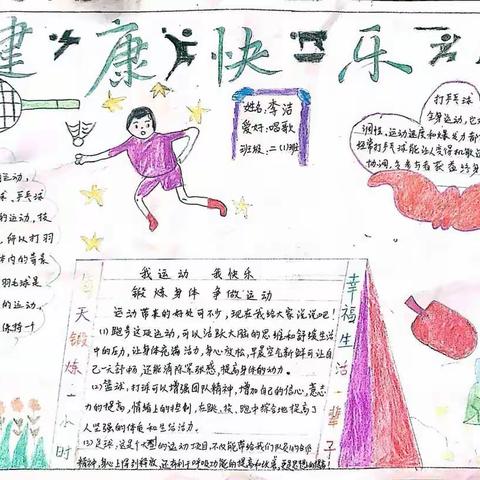 健康快乐
姓名:李洁
爱好:唱歌
班级:二(1)班
打乒乓球
全身运动,它
调性、运动速度和爆发力都
经常打乒乓球能让人变得机敏
协调,
运动,
球、乒乓球
的运动,技
,所以打羽
体内的毒素
羽毛球是
的运动。
保持一
每天锻炼一小时
我运动 我快乐
锻炼身体 争做运动
运动带来的好处可不少,现在我给大家说说吧!
(1)跑步这项运动,可以活跃大脑的思维和舒缓生活
中的压力,让身体充满活力,身心放松,早晨空气新鲜可让自
己一天舒畅,还能消除紧张感,提高身体的动力。
(2)篮球,打球可以增强团队精神,增加自己的信心,意志
力的提高,情绪上的控制,在跳、投、跑中综合地提高了
人坚强的体魄和生活活力。
(3)足球,这是个大型的运动项目,不仅能带给我们队友的
精神,身心上得到释放,还有利于呼吸功能的提高和改善,
幸福生活一辈子